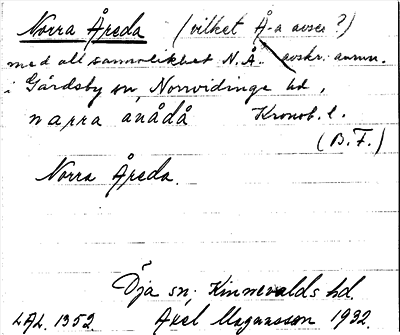 Norra Åreda (vilket Å-a avses?)
med all sannolikhet N. Å. avskr. anm.
i Gårdsby sn, Norrvidinge hd,
narra anådå Kronob. l.
(B.F.)
Norra Åreda.
Öja sn; Kinnevalds hd.
LAL. 1352 Axel Magnusson 1932.